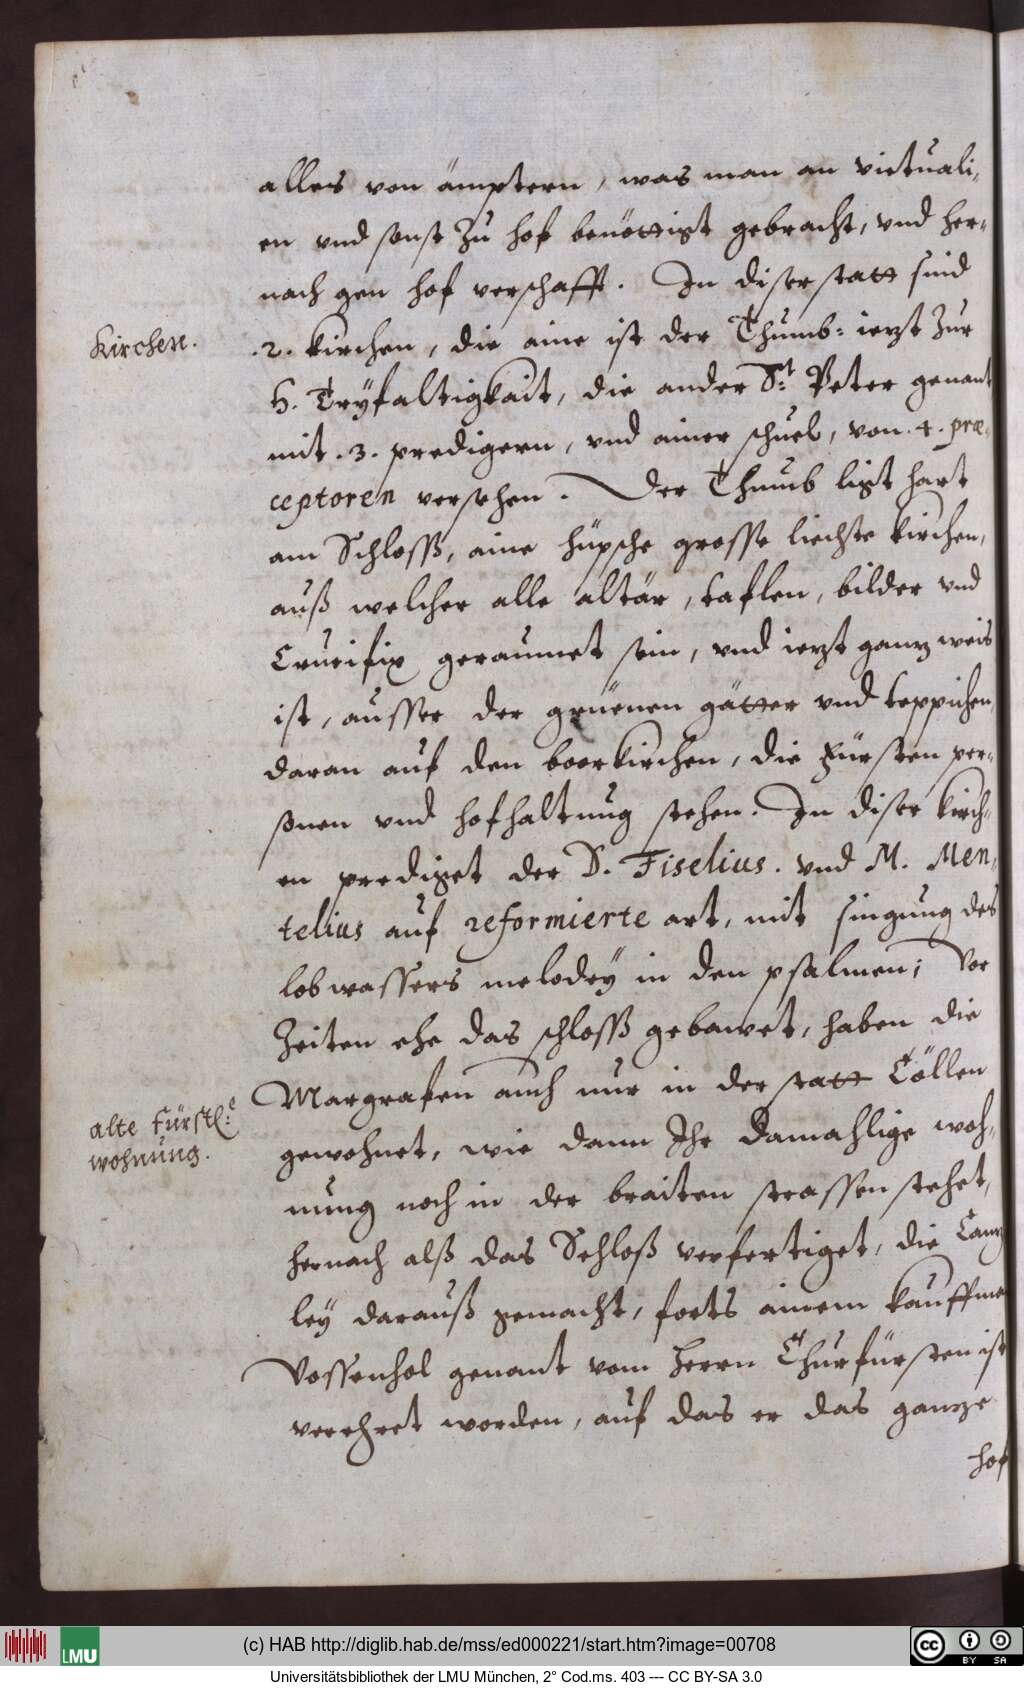 alles von ämptern, was man an victuali,
en vnd sonst zu hof benöttigt gebracht, vnd her,
nach gen hof verschafft. In diser statt sind
Kirchen.
.2. kirchen, die aine ist der Thumb: iezt zur
H. Tryfaltigkait, die ander St: Peter genant
mit .3. predigern, vnd ainer schuel, von .4. præ,
ceptoren versehen. Der Thumb ligt hart
am Schloss, aine hüpsche grosse liechte kirchen,
auß welcher alle altär, taflen, bilder vnd
Crucifix geraumet sein, vnd iezt ganz weis
ist, ausser der grüenen gätter vnd teppichen,
daran auf den boorkirchen, die Fürsten per,
sonen vnd hofhaltung stehen. In diser kirch,
en prediget der D. Fiselius. vnd M. Men,
telius auf reformierte art, mit singung des
lobwassers melodey in den psalmen; Vor
Zeiten ehe das schloss gebawet, haben die
Margrafen auch nur in der statt Cöllen
alte Fürstl:e
wohnung.
gewohnet, wie dann Ihr damahlige woh,
nung noch in der braiten strassen stehet,
hernach alß das Schloß verfertiget, die Canz
ley darauß gemacht, forts ainem kauffman
Vossenhol genant vom Herrn Churfürsten ist
verehret worden, auf das er das ganze
hof
(c) HAB http://diglib.hab.de/mss/ed000221/start.htm?image=00708
LMU
cc BY SA
Universitätsbibliothek der LMU München, 2° Cod.ms. 403 --- CC BY-SA 3.0